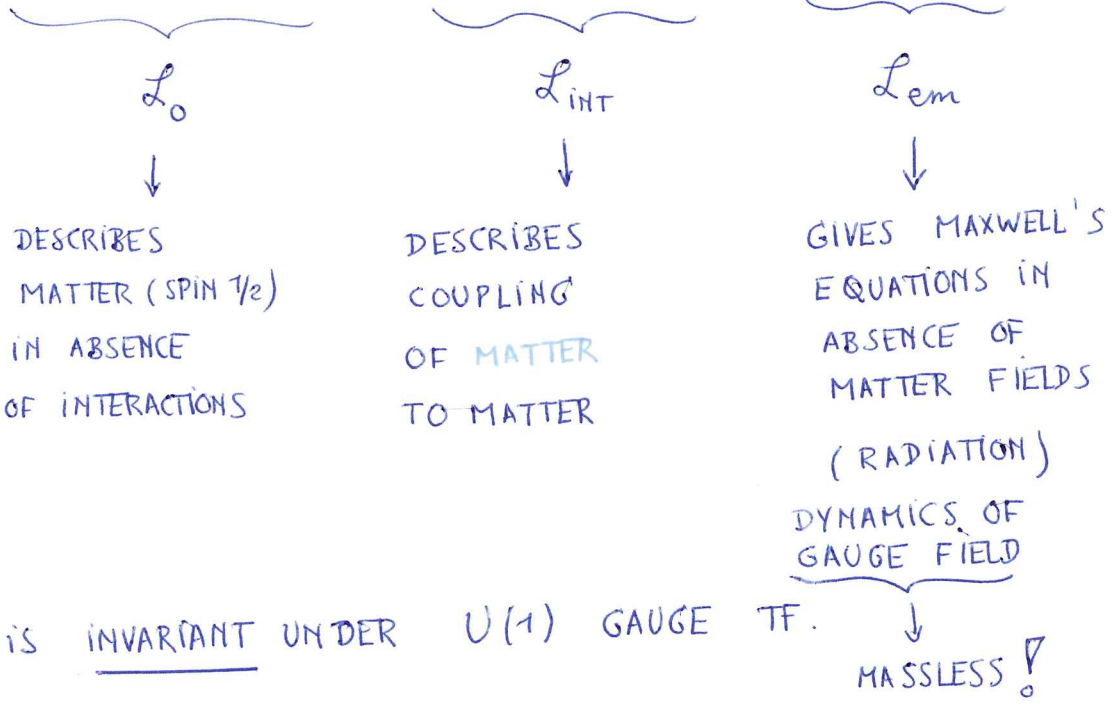 ℒ₀
↓
DESCRIBES
MATTER (SPIN 1/2)
IN ABSENCE
OF INTERACTIONS
ℒ_INT
↓
DESCRIBES
COUPLING
OF MATTER
TO MATTER
ℒ_em
↓
GIVES MAXWELL'S
EQUATIONS IN
ABSENCE OF
MATTER FIELDS
(RADIATION)
DYNAMICS OF
GAUGE FIELD
↓
MASSLESS!
IS INVARIANT UNDER U(1) GAUGE TF.